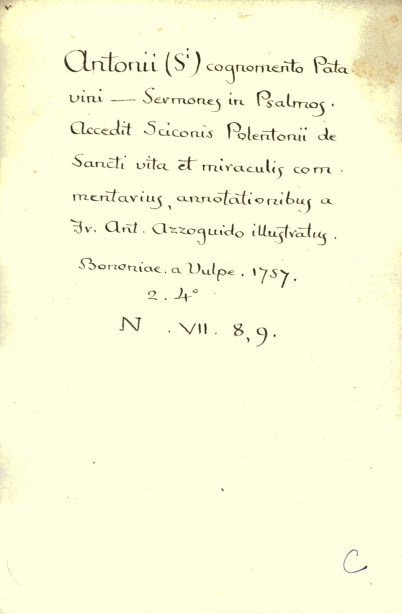 Antonii (Sⁱ) cognomento Pata-
vini — Sermones in Psalmos.
Accedit Sciconis Polentonii de
Sancti vita et miraculis com-
mentarius, annotationibus a
Fr. Ant. Azzoguido illustratus.
Bononiae. a Vulpe. 1757.
2. 4°
N . VII. 8, 9.
C